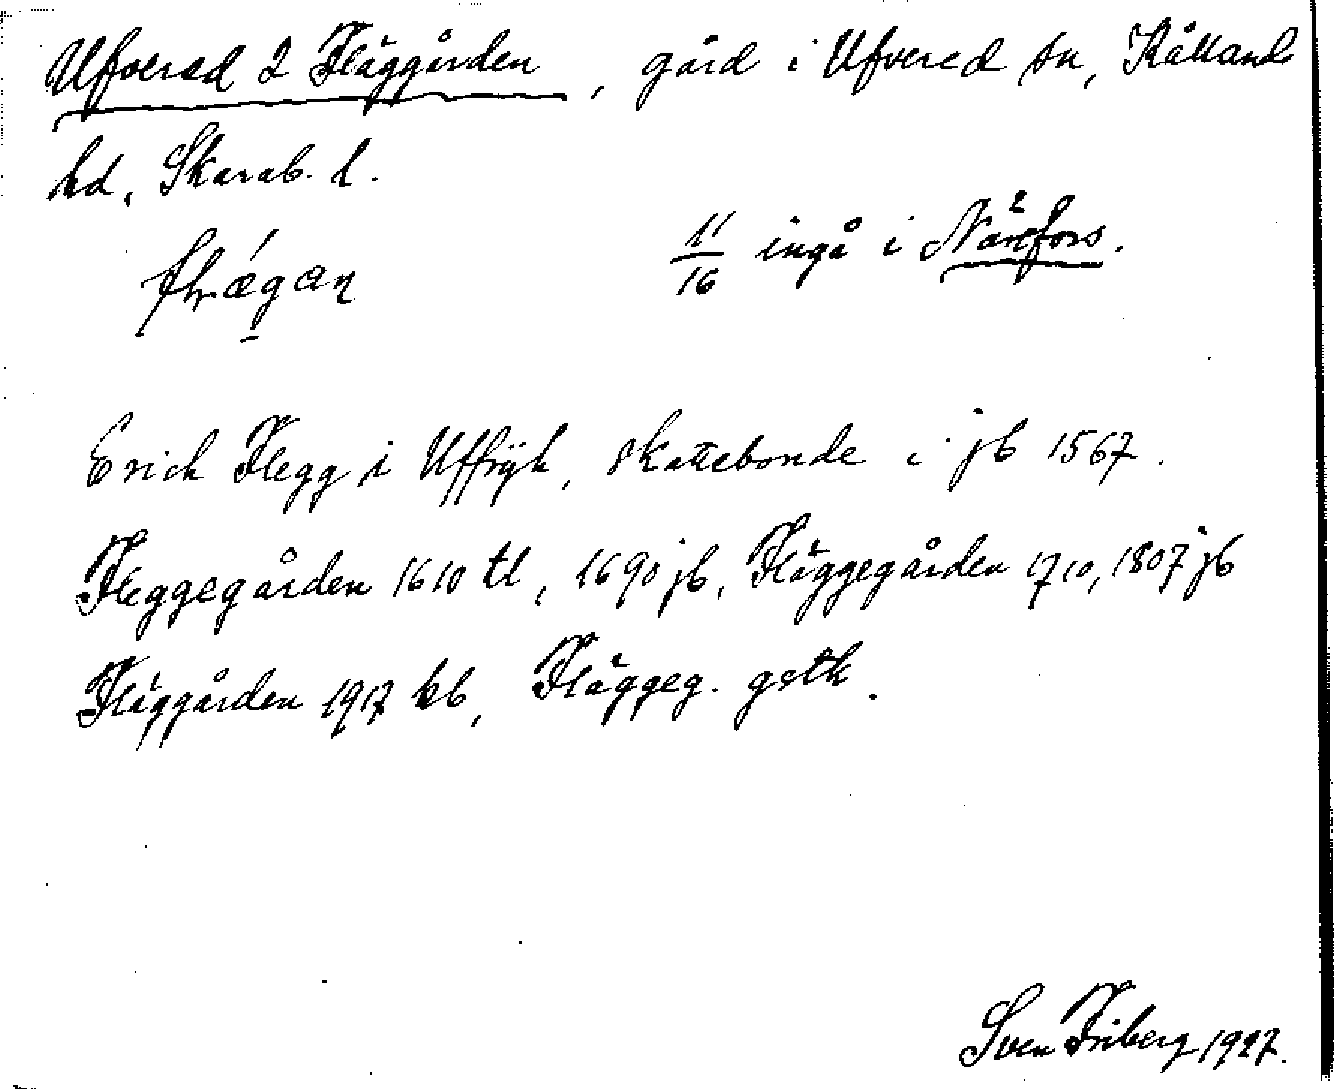 Ufvered 2 Fläggården, gård i Ufvered sn, Kållands
hd, Skarab. l.
flægan
11/16 ingå i Näs 2 fors.
Erick Flegg i Uffryk, skattebonde i jb 1567.
Fleggegården 1610 tl, 1690 jb, Fläggegården 1710, 1807 jb
Fläggården 1917 kb, Fläggeg. gstk.
Sven Friberg 1927.